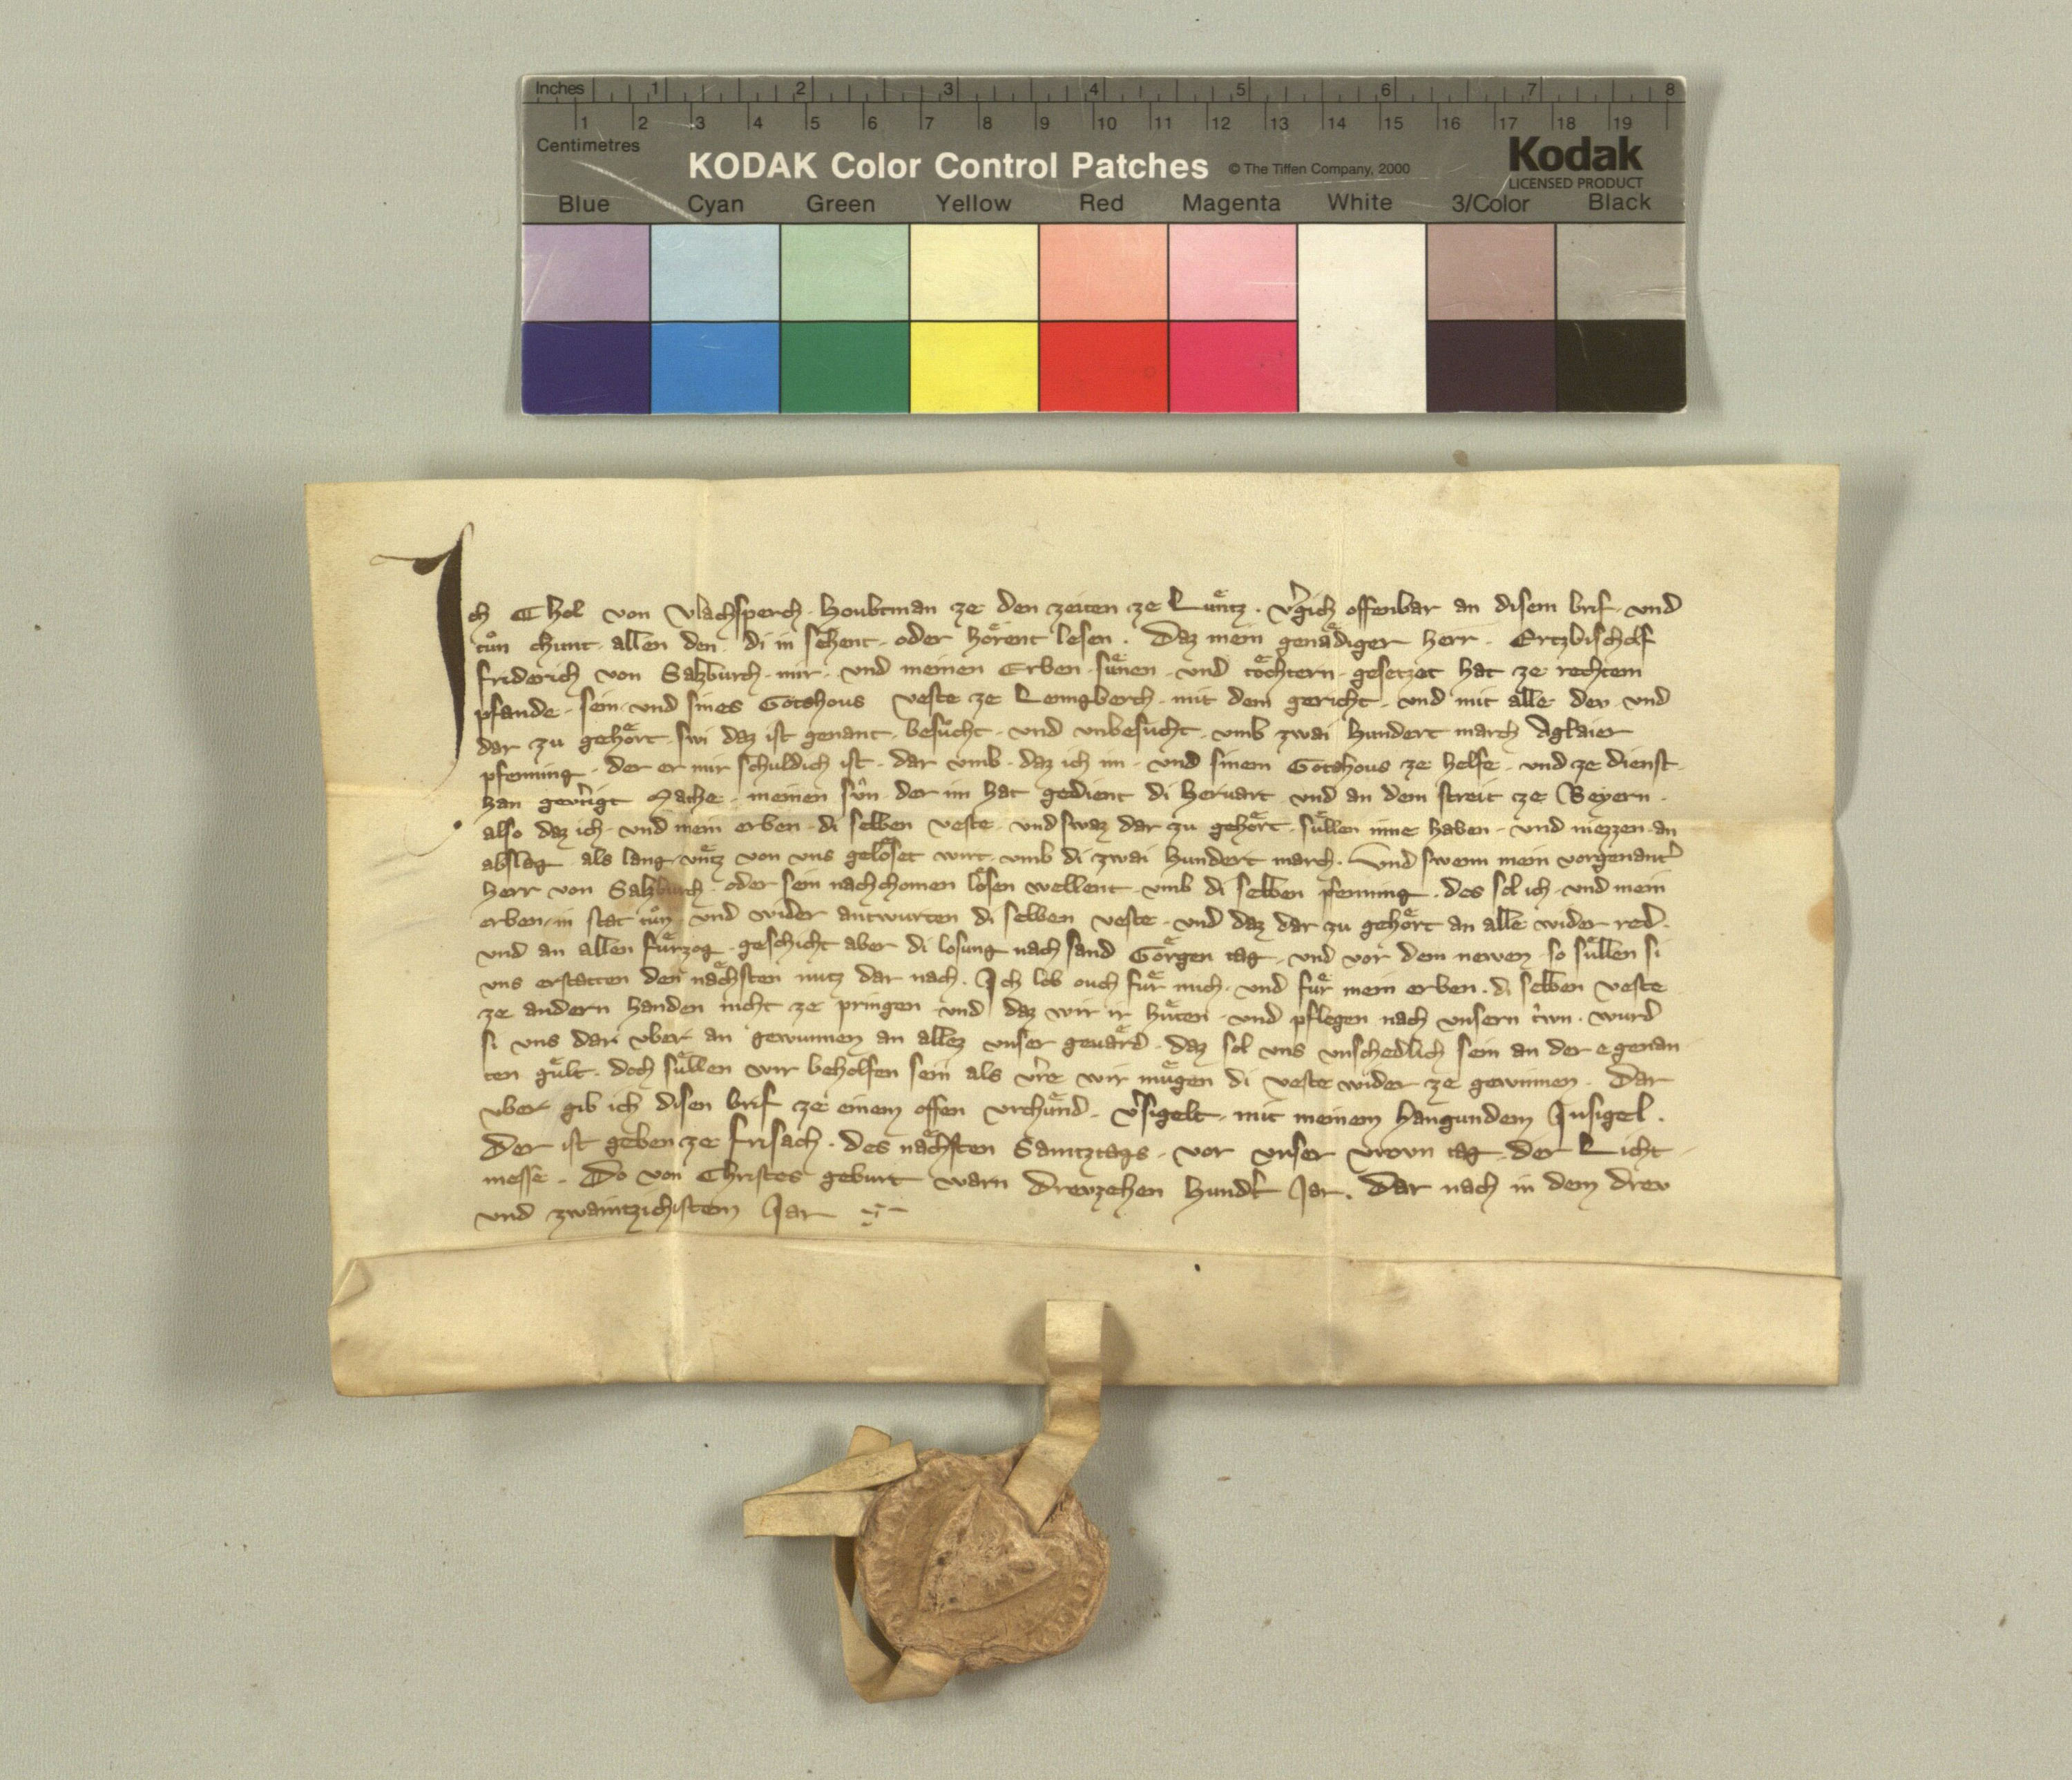 Inches 1 2 3 4 5 6 7 8
1 2 3 4 5 6 7 8 9 10 11 12 13 14 15 16 17 18 19
Centimetres
KODAK Color Control Patches © The Tiffen Company, 2000 Kodak
LICENSED PRODUCT
Blue Cyan Green Yellow Red Magenta White 3/Color Black
Ich Chol von Vlachsperch · Houbtman ze den zeiten ze Luͤntz · v͛gich offenbar an disem brif · vnd
tuͦn chunt · allen den · di in sehent · oder hoͤrent lesen · Daz mein genaͤdiger herr · Ertzbischolf
friderich von Salzburch · mir · vnd meinen Erben · suͤnen · vnd toͤchtern · gesetzet hat ze rechtem
pfande · sein · vnd sines Gotshous veste ze Lenngberch · mit dem gericht · vnd mit alle dev · vnd
dar zu gehoͤrt · swi daz ist genant · besuͦcht · vnd vnbesucht · vmb zwai Hundert march Aglaier
pfenning · der er mir schuldich ist · dar vmb · daz ich im · vnd sinem Gotshous ze helfe · vnd ze dienst
han gev͛tigt Mathe · meinen sun · der im hat gedient di heruart · vnd an dem streit ze Beyern ·
also daz ich · vnd mein erben · di selben veste · vnd swaz dar zu gehoͤrt · suͤllen inne haben · vnd niezzen · an
abslag · als lang · vntz von vns geloͤset wirt · vmb di zwai hundert march · Und swenn mein vorgenant͛
herr von Salzburch · oder sein nachchomen loͤsen wellent · vmb di selben pfenning · des sol ich · vnd mein
erben · in stat tuͦn · vnd wider antwurten di selben veste · vnd daz dar zu gehoͤrt an alle wider red ·
vnd an allen fuͤrzog · geschicht aber di losung nach sand Goͤrgen tag · vnd vor dem newen · so suͤllen si
vns erstatten den naͤchsten nutz dar nach · Ich lob ouch fuͤr mich · vnd fuͤr mein erben · di selben veste
ze andern handen nicht ze pringen · vnd daz wir ir huͤten · vnd pflegen nach vnsern t͛wn · wurd
si vns dar vber an gewunnen an allez vnser geuaͤrd · daz sol vns vnschedlich sein an der egenan
ten guͤlt · doch suͤllen wir beholfen sein als v͛re wir muͤgen di veste wider ze gewinnen · Dar
vber gib ich disen brif ze einem offen vrchuͤnd · v͛sigelt · mit meinem hangundem Insigel ·
Der ist geben ze frisach · des naͤchsten Samtztags · vor vnser vrovn tag · der Licht
messe · Do von Christes geburt warn Drevzehen Hund͛t Jar · Dar nach in dem drev
vnd zwaintzichistem Jar